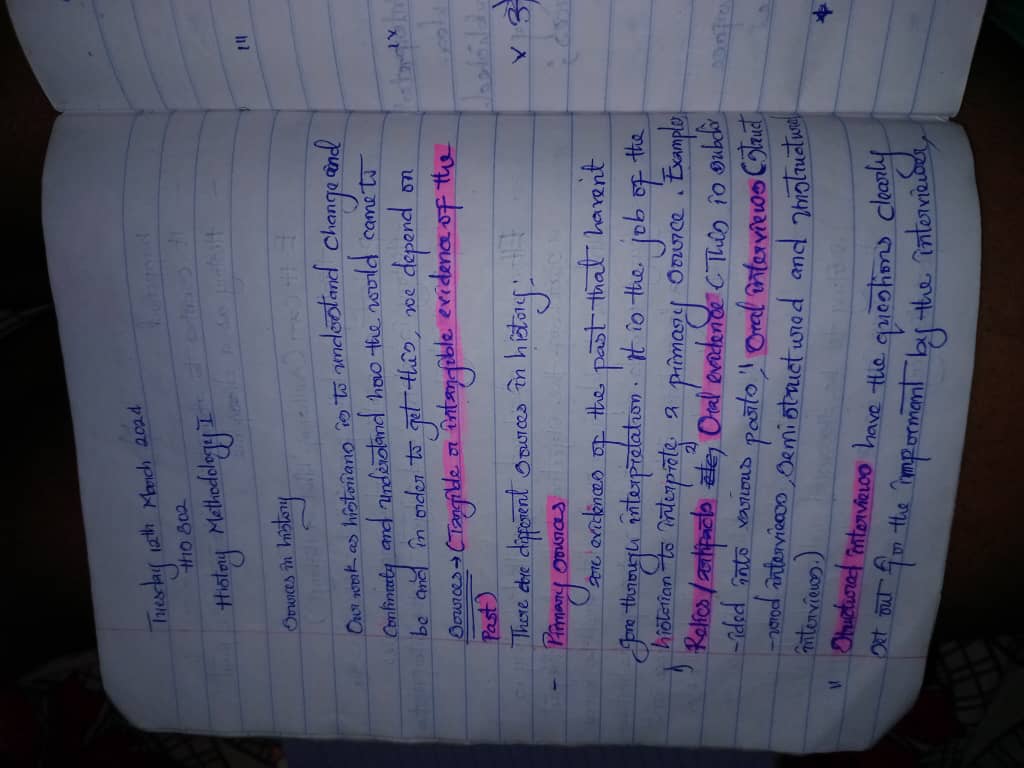 Tuesday 12th March 2024
HIO 302
History Methodology I
Sources in history
Our work as historians is to understand change and
Continuity and understand how the world came to
be and in order to get this, we depend on
Sources → (Tangible or intangible evidence of the
Past)
There are different sources in history:
- Primary sources
are evidences of the past that haven't
gone through interpretation. It is the job of the
historian to interprete a primary source. Examples
Relics/artifacts etc, Oral evidence (This is subdiv
-ided into various parts; Oral interviews (struct
-ured interviews, semi structured and unstructured
interviews.)
" Structured interviews have the questions clearly
set out for the impormant by the interviewer,